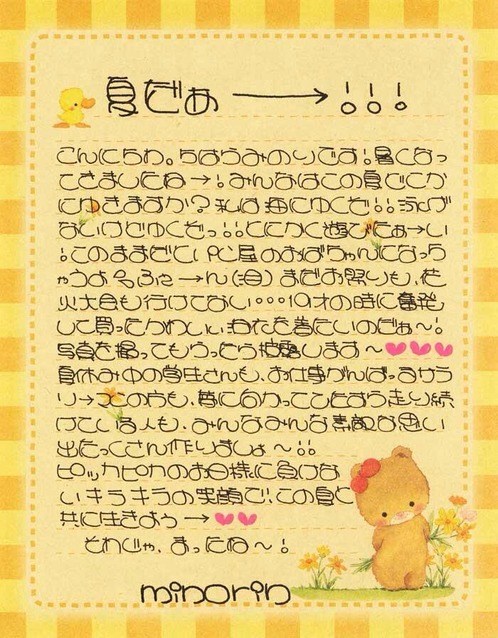 夏だぁ──→!!!
こんにちわ。ちはらみのりです!暑くなっ
てきましたね→!みんなはこの夏どこか
にゆきますか?私は海にゆくぞ!!泳げ
ないけどゆくぞっ!!とにかく遊びたぁ→い
!このままだと、パン屋のおばちゃんになっち
ゃうよぉふぇ→ん(泣)まだお祭りも、花
火大会も行けてない…19才の時に奮発
して買ったかわいいゆかたを着たいのだぁ〜!
写真を撮ってもらったら披露します〜♥♥♥
夏休み中の学生さんも、お仕事がんばるサラ
リ→マンの方も、夢に向かってひたすら走り続
けている人も、みんなみんな素敵な思い
出たっくさん作りましょぉ〜!!
ピッカピカのお日様に負けな
いキラキラの笑顔で、この夏と
共に生きよう→♥♥
それじゃ、まったね〜!
minorin